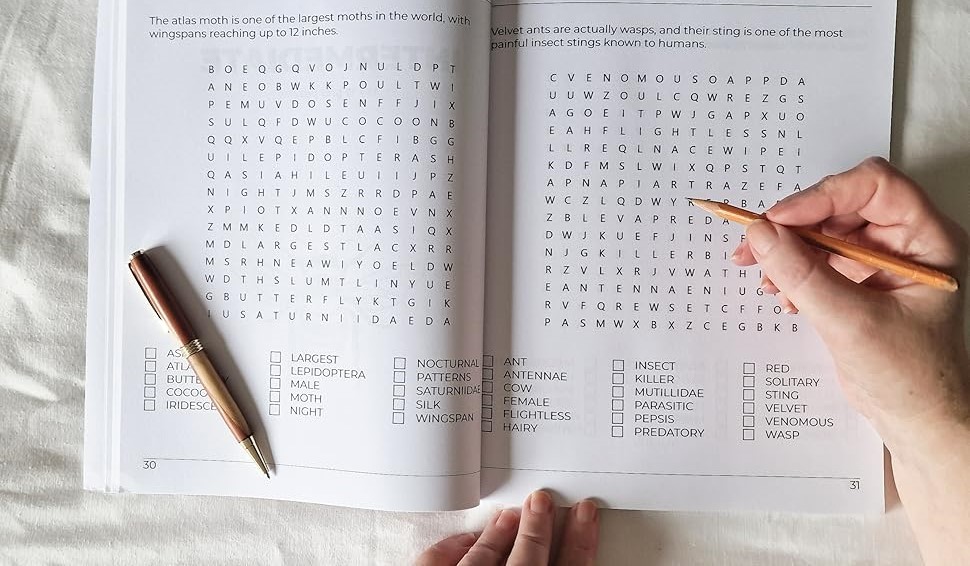 The atlas moth is one of the largest moths in the world, with
wingspans reaching up to 12 inches.
B O E Q G Q V O J N U L D P T
A N E O B W K K P O U L T W I
P E M U V D O S E N F F J I X
S U L Q F D W U C O C O O N B
Q Q X V Q E P B L C F I B G G
U I L E P I D O P T E R A S H
Q A S I A H I L E U I I J P Z
N I G H T J M S Z R R D P A E
X P I O T X A N N N O E V N X
Z M M K E D L D T A A S I Q X
M D L A R G E S T L A C X R R
M S R H N E A W I Y O E L D W
W D T H S L U M T L I N Y U E
G B U T T E R F L Y K T G I K
I U S A T U R N I I D A E D A
LARGEST
LEPIDOPTERA
MALE
MOTH
NIGHT
NOCTURNAL
PATTERNS
SATURNIIDAE
SILK
WINGSPAN
30
Velvet ants are actually wasps, and their sting is one of the most
painful insect stings known to humans.
C V E N O M O U S O A P P D A
U U W Z O U L C Q W R E Z G S
A G O E I T P W J G A P X U O
E A H F L I G H T L E S S N L
L L R E Q L N A C E W I P E I
K D F M S L W I X Q P S T Q T
A P N A P J A R T R A Z E F A
W C Z L Q D W Y R B A
Z B L E V A P R E D A
D W J K U E F J I N S F
N J G K I L L E R B I
R Z V L X R J V W A T H I
E A N T E N N A E N I U G
R V F Q R E W S E T C F F O
P A S M W X B X Z C E G B K B
ANT
ANTENNAE
COW
FEMALE
FLIGHTLESS
HAIRY
INSECT
KILLER
MUTILLIDAE
PARASITIC
PEPSIS
PREDATORY
RED
SOLITARY
STING
VELVET
VENOMOUS
WASP
31